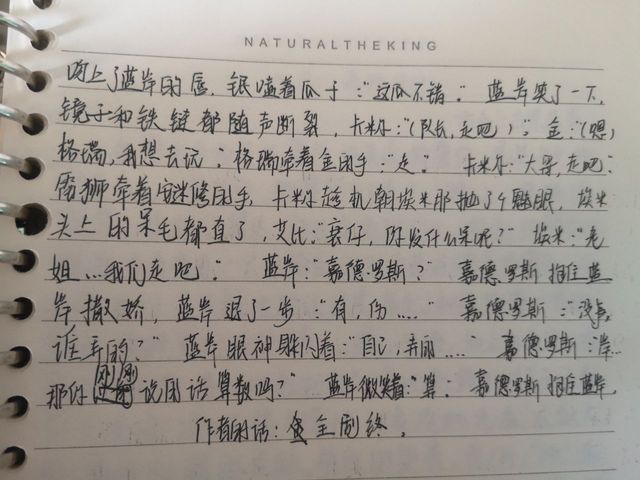 NATURALTHEKING
吻上了蓝岸的唇，银嗑着瓜子："这瓜不错。" 蓝岸笑了一下，
镜子和铁链都随声断裂，卡米尔："(队长，走吧)。金："(嗯)
格瑞，我想去玩。"格瑞牵着金的手："走。" 卡米尔："大哥，走吧"
雷狮牵着安迷修的手，卡米尔趁机朝埃米那抛了个魅眼，埃米
头上的呆毛都直了，艾比："衰仔，你发什么呆呢？" 埃米："老
姐…我们走吧。" 蓝岸："嘉德罗斯？" 嘉德罗斯抱住蓝
岸撒娇，蓝岸退了一步："有，伤…." 嘉德罗斯："没事，
谁弄的？" 蓝岸眼神躲闪着："自己，弄的…." 嘉德罗斯："岸…
那你刚刚说的话算数吗？" 蓝岸微笑着："算。" 嘉德罗斯抱住蓝岸。
作者的话：全剧终。